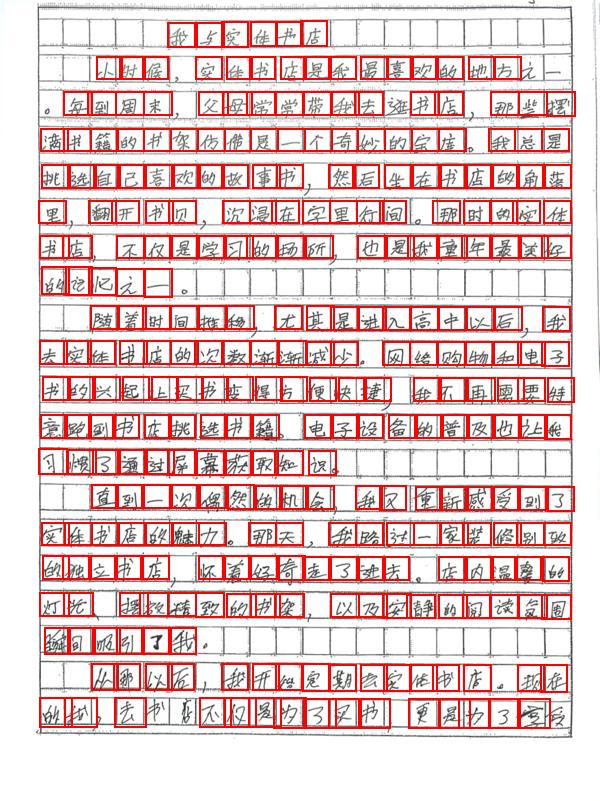 我与实体书店
小时候，实体书店是我最喜欢的地方之一
。每到周末，父母常常带我去逛书店，那些摆
满书籍的书架仿佛是一个奇妙的宝库。我总是
挑选自己喜欢的故事书，然后坐在书店的角落
里，翻开书页，沉浸在字里行间。那时的实体
书店，不仅是学习的场所，也是我童年最美好
的记忆之一。
随着时间推移，尤其是进入高中以后，我
去实体书店的次数渐渐减少。网络购物和电子
书的兴起让买书变得方便快捷，我不再需要特
意跑到书店挑选书籍。电子设备的普及也让我
习惯了通过屏幕获取知识。
直到一次偶然的机会，我又重新感受到了
实体书店的魅力。那天，我路过一家装修别致
的独立书店，怀着好奇走了进去。店内温馨的
灯光、摆放精致的书架，以及安静的阅读氛围
瞬间吸引了我。
从那以后，我开始定期去实体书店。现在
的我，去书店不仅是为了买书，更是为了享受